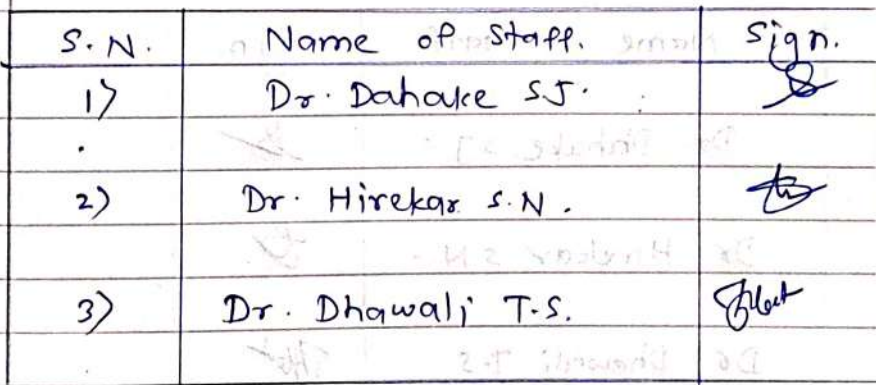 S.N. Name of Staff. Sign.
1) Dr. Dahake S.J.
2) Dr. Hirekar S.N.
3) Dr. Dhawali T.S.